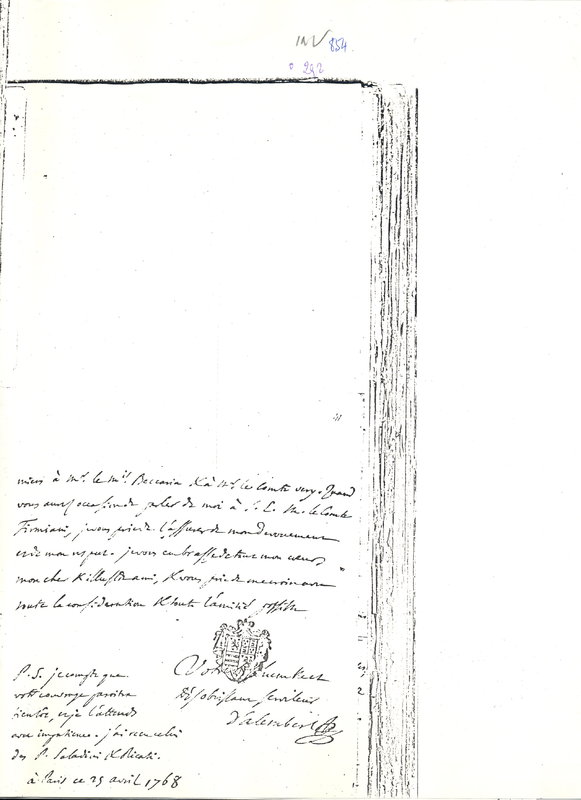 INV 854
292
miens à Mr. le Mis. Beccaria & à Mr. le Comte very. Quand
vous aurez occasion de parler de moi à S. E. M. le Comte
Firmiani, je vous prie de l'assurer de mon devouement
et de mon respect. je vous embrasse de tout mon cœur,
mon cher & illustre ami, & vous prie de me croire avec
toute la consideration & toute l'amitié possible
Votre
très obeissant serviteur
D'alembert
P. S. je compte que
votre ouvrage paroitra
bientôt, et je l'attends
avec impatience. j'ai reçu celui
des P. Saladini & Ricati.
à Paris ce 29 avril 1768